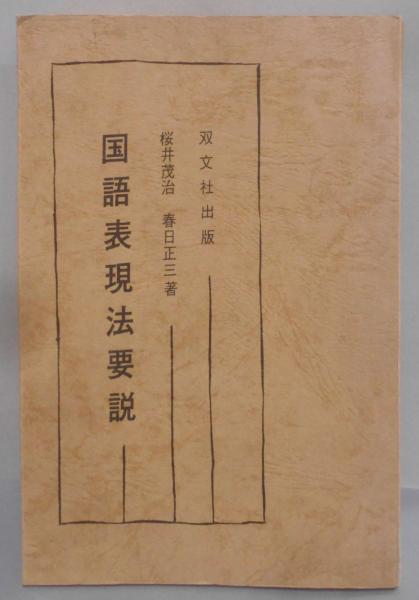 双文社出版
桜井茂治　春日正三著
国語表現法要説